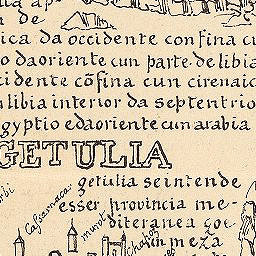 ica da occidente confina cu
o da oriente cun parte de libia
cidente cõfina cun cirenaic
libia interior da septentrio
gyptio e da oriente cun arabia
GETULIA
getulia se intende
esser provincia me-
diteranea
in meza